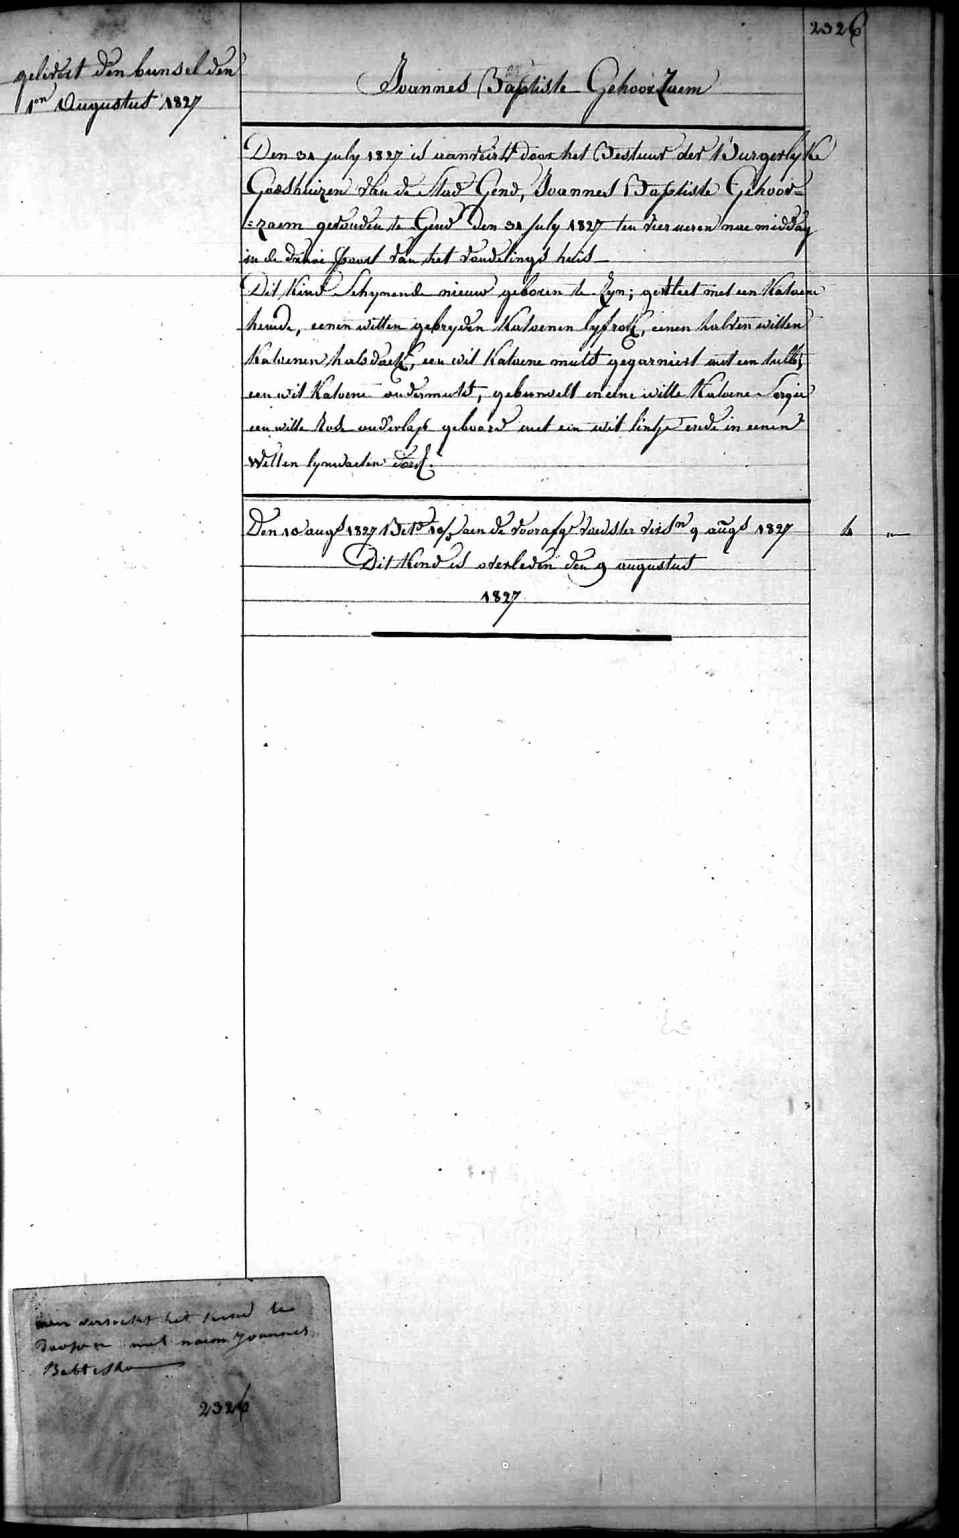 2326
gelevert den bunsel den
1en Augustus 1827
Joannes Baptiste Gehoorzaem
Den 31 july 1827 is aanveirt door het Bestuur der Burgerlyke
Godshuizen van de Stad Gend, Joannes Baptiste Gehoor=
=zaem gevonden te Gend den 31 july 1827 ten vier ueren nae middag
in de draeie Poort van het vondelings huis
Dit kind schynende nieuw geboren te zyn; gekleet met een katoene
hemde, eenen witten gebryden katoenen lyfrok, eenen halven witten
katoenen halsdoek, een wit katoene muts gegarniert met een tulle,
een wit katoene ondermuts, gebunselt in eene witte katoene sergie
een witte onderlap geboord met een wit lintje ende in eenen
witten lynwaeten doek.
Den 10 augs 1827 aen de voorafge voedster 9 augs 1827
Dit Kind is overleden den 9 augustus
1827
men versoekt het kind te
doopen met naem joannes
Babtista
2326